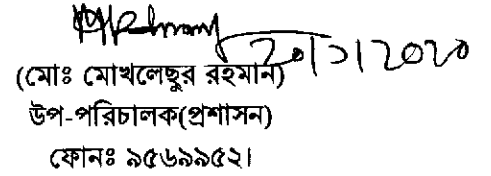 ২০/১/২০২০
(মোঃ মোখলেছুর রহমান)
উপ-পরিচালক(প্রশাসন)
ফোনঃ ৯৫৬৯৯৫২।